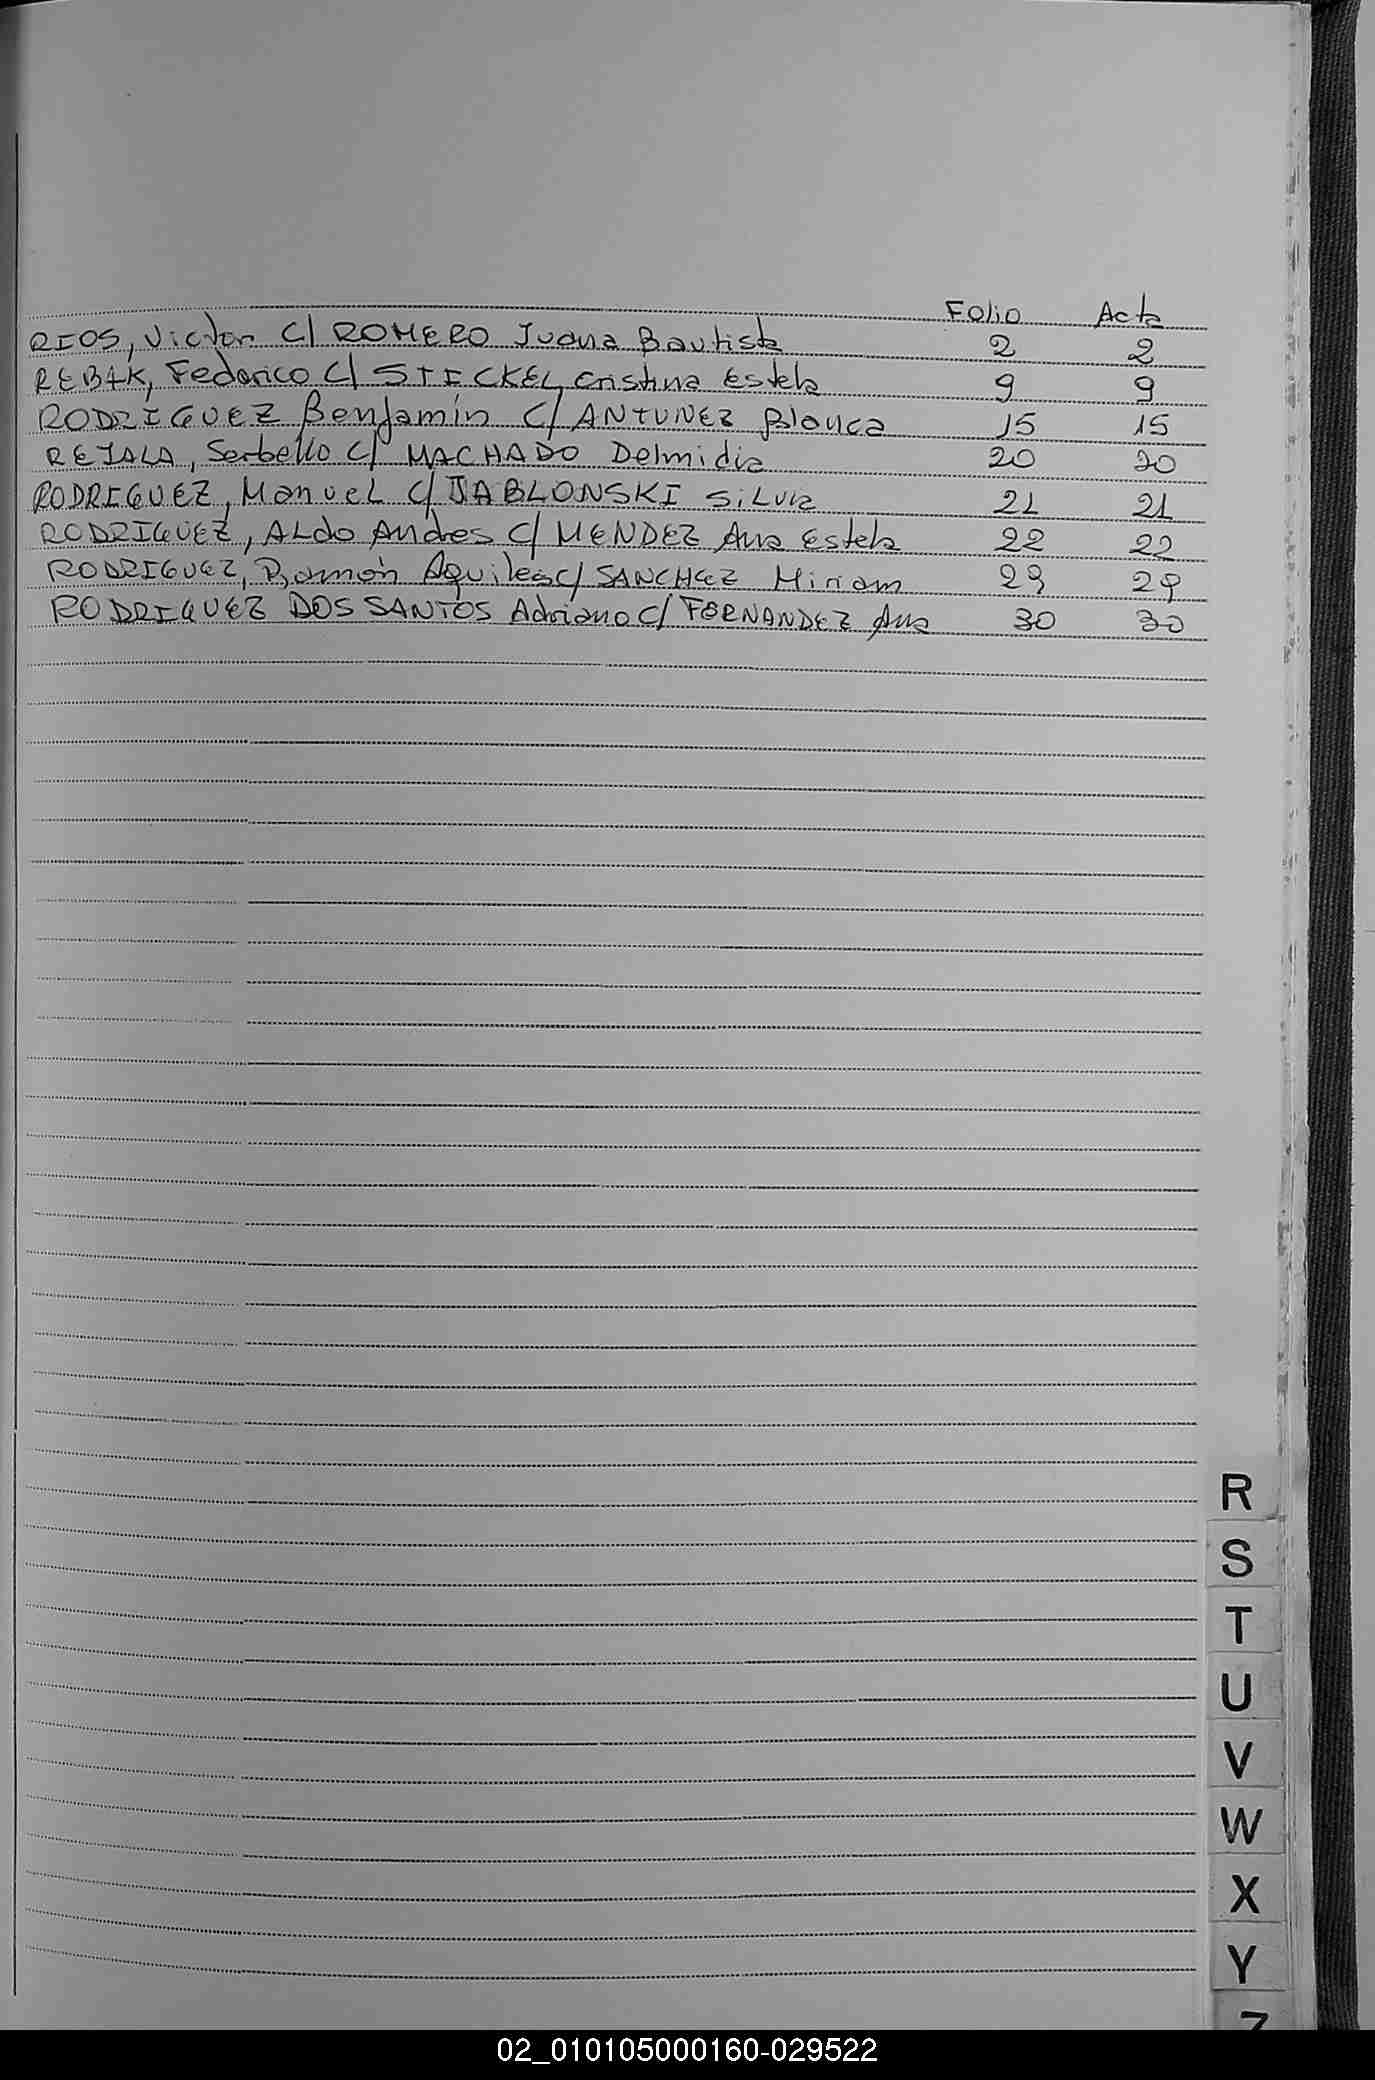 Folio Acta
RIOS, Victor C/ ROMERO Juana Bautista 2 2
REBAK, Federico C/ STICKEL Cristina Estela 9 9
RODRIGUEZ Benjamín C/ ANTUNEZ Blanca 15 15
REJALA, Serbello C/ MACHADO Delmidia 20 20
RODRIGUEZ, Manuel C/ JABLONSKI Silvia 21 21
RODRIGUEZ, Aldo Andres C/ MENDEZ Ana Estela 22 22
RODRIGUEZ, Ramón Aquiles C/ SANCHEZ Miriam 29 29
RODRIGUEZ DOS SANTOS Adriano C/ FERNANDEZ Ana 30 30
R
S
T
U
V
W
X
Y
Z
02_010105000160-029522